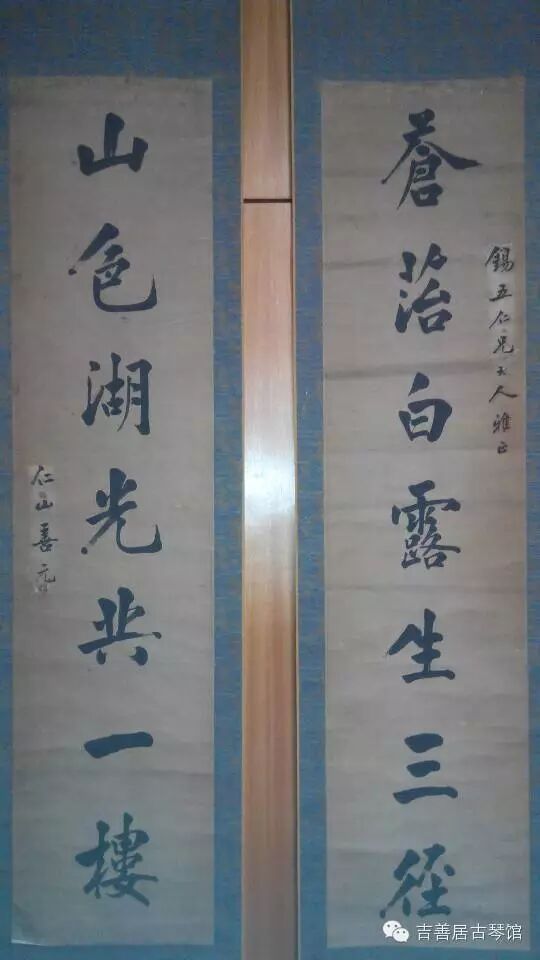 錫五仁兄大人雅正
蒼菭白露生三徑
山色湖光共一樓
仁山善元
吉善居古琴馆